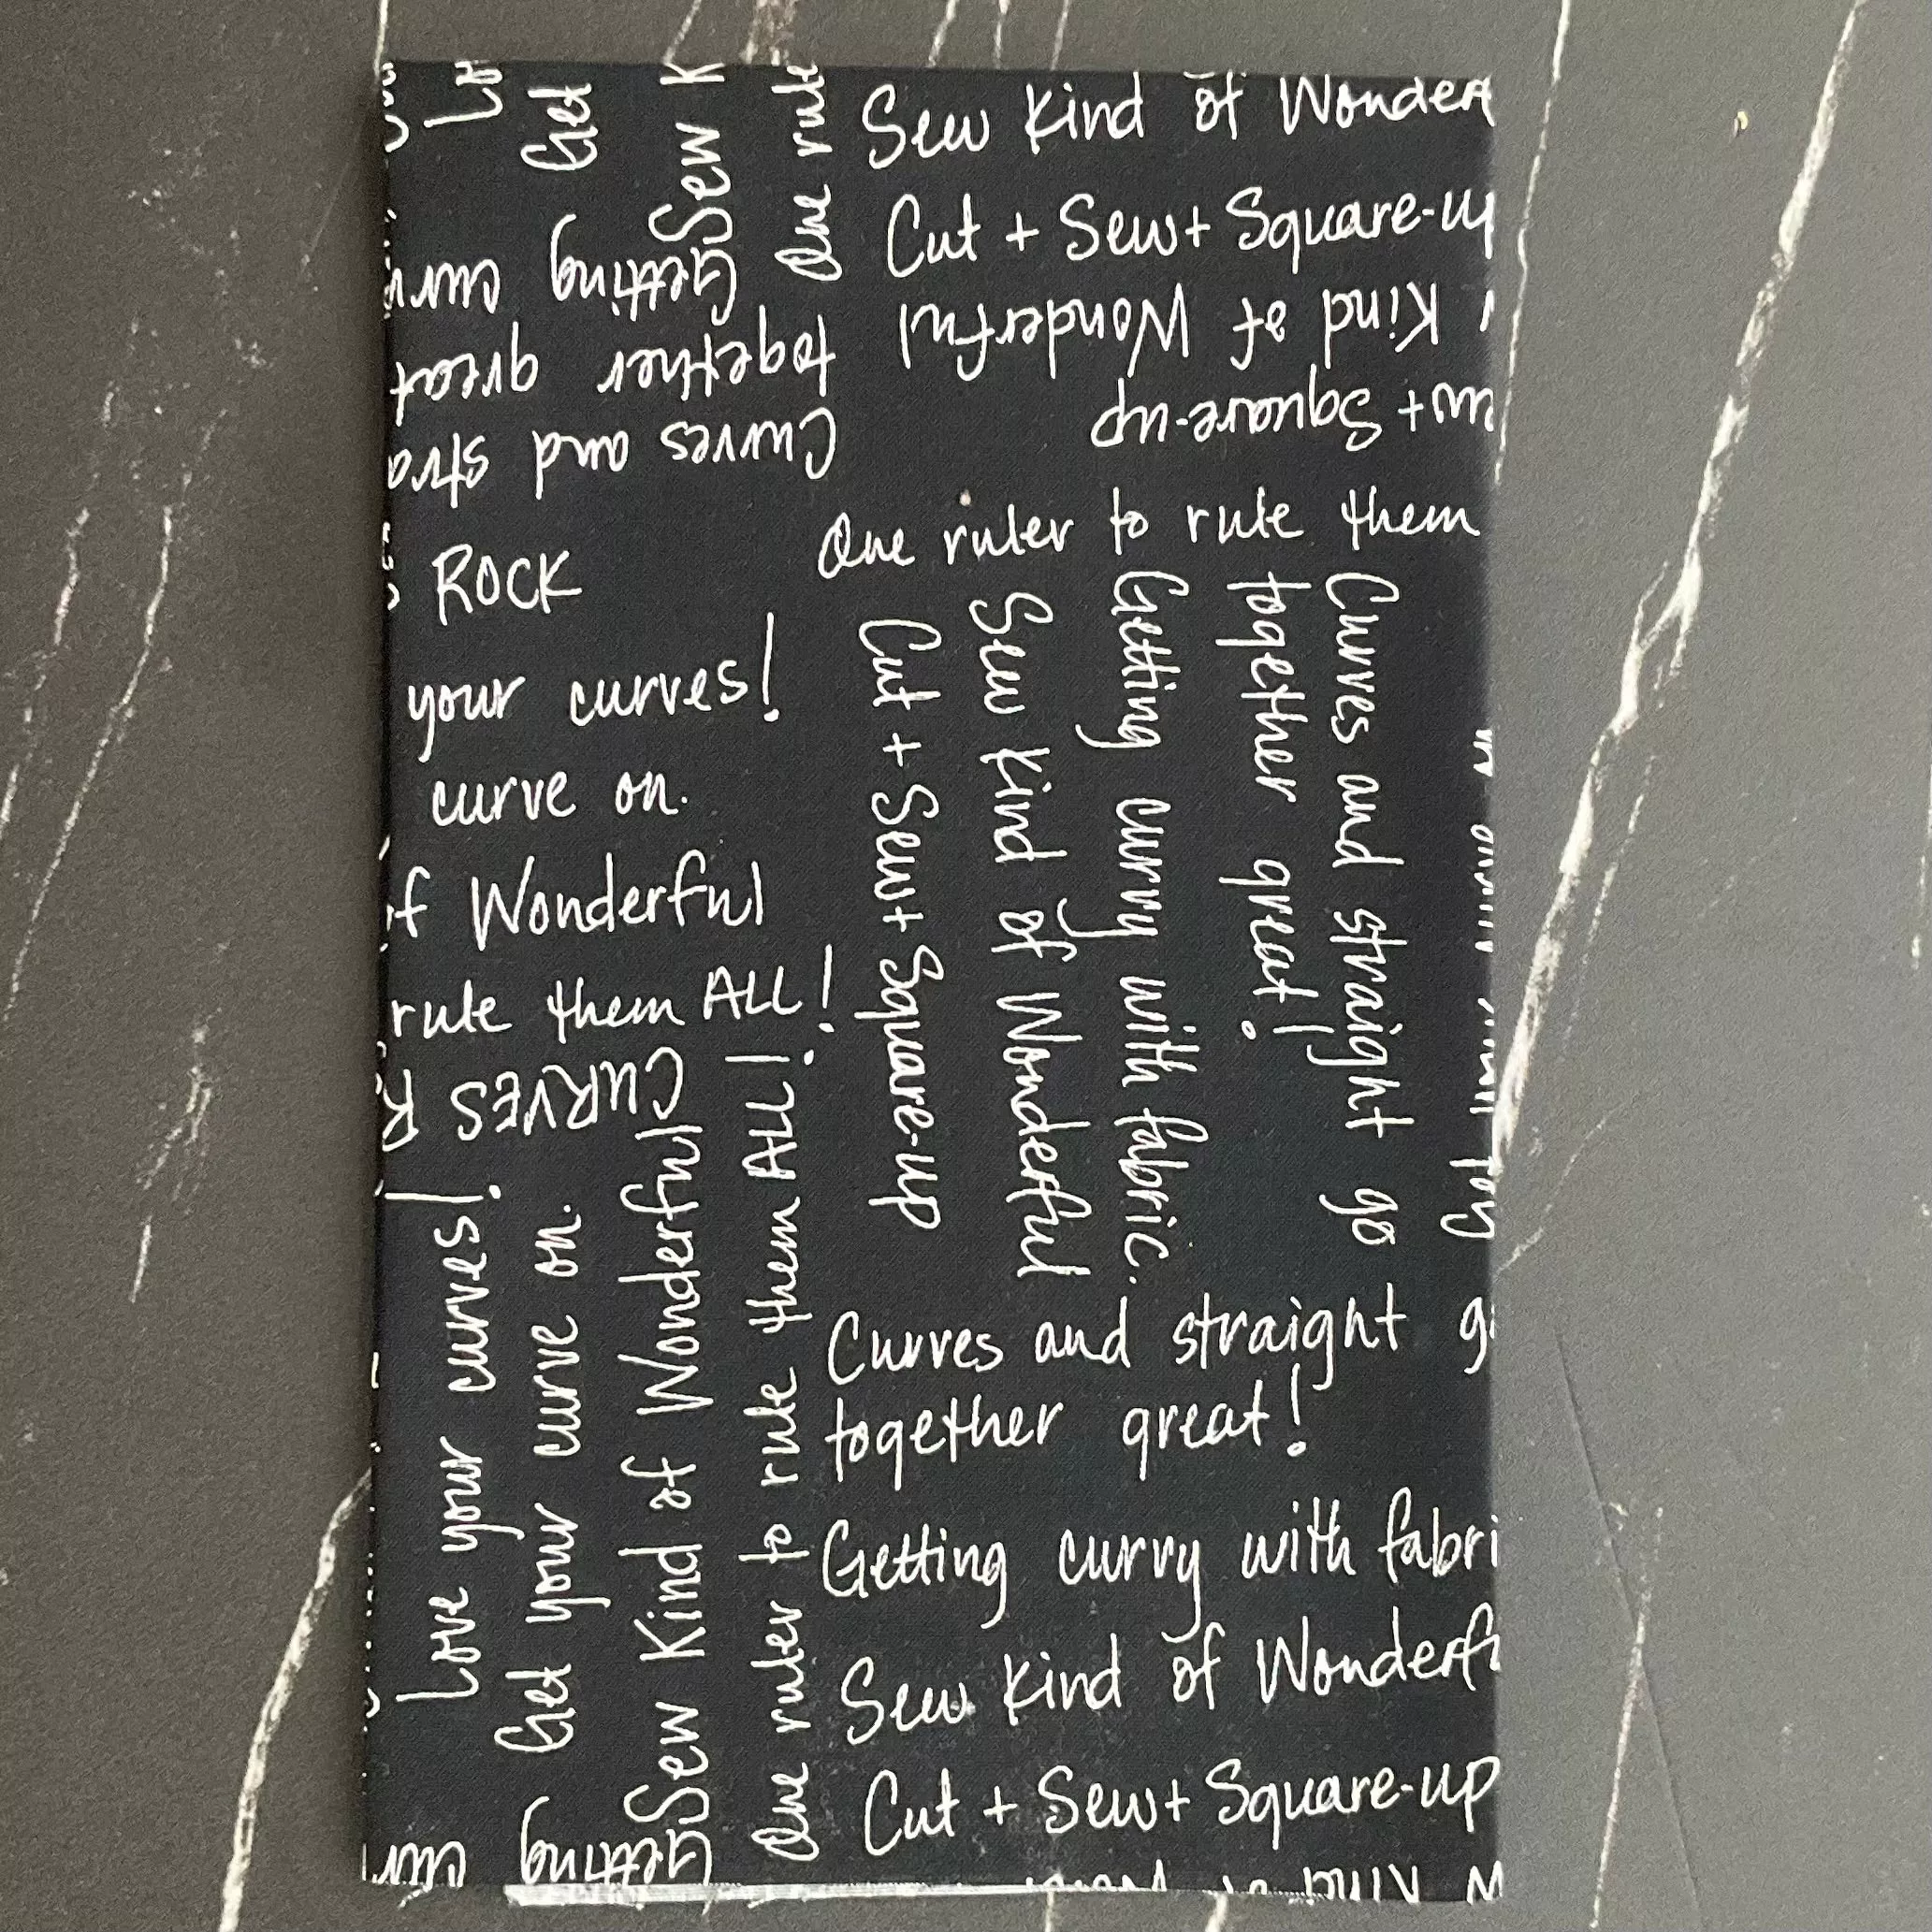 Get
Sew K
One rule
Sew Kind of Wonder
Cut + Sew + Square-up
Getting curv
together great
Curves and stra
Kind of Wonderful
+ Square-up
ROCK
your curves!
curve on.
of Wonderful
rule them ALL!
CURVES R
One ruler to rule them
Curves and straight go
together great!
Getting curvy with fabric.
Sew Kind of Wonderful
Cut + Sew + Square-up
Love your curves!
Get your curve on.
Sew Kind of Wonderful
One ruler to rule them ALL!
Curves and straight g
together great!
Getting curvy with fabri
Sew Kind of Wonderfu
Cut + Sew + Square-up
Getting cur